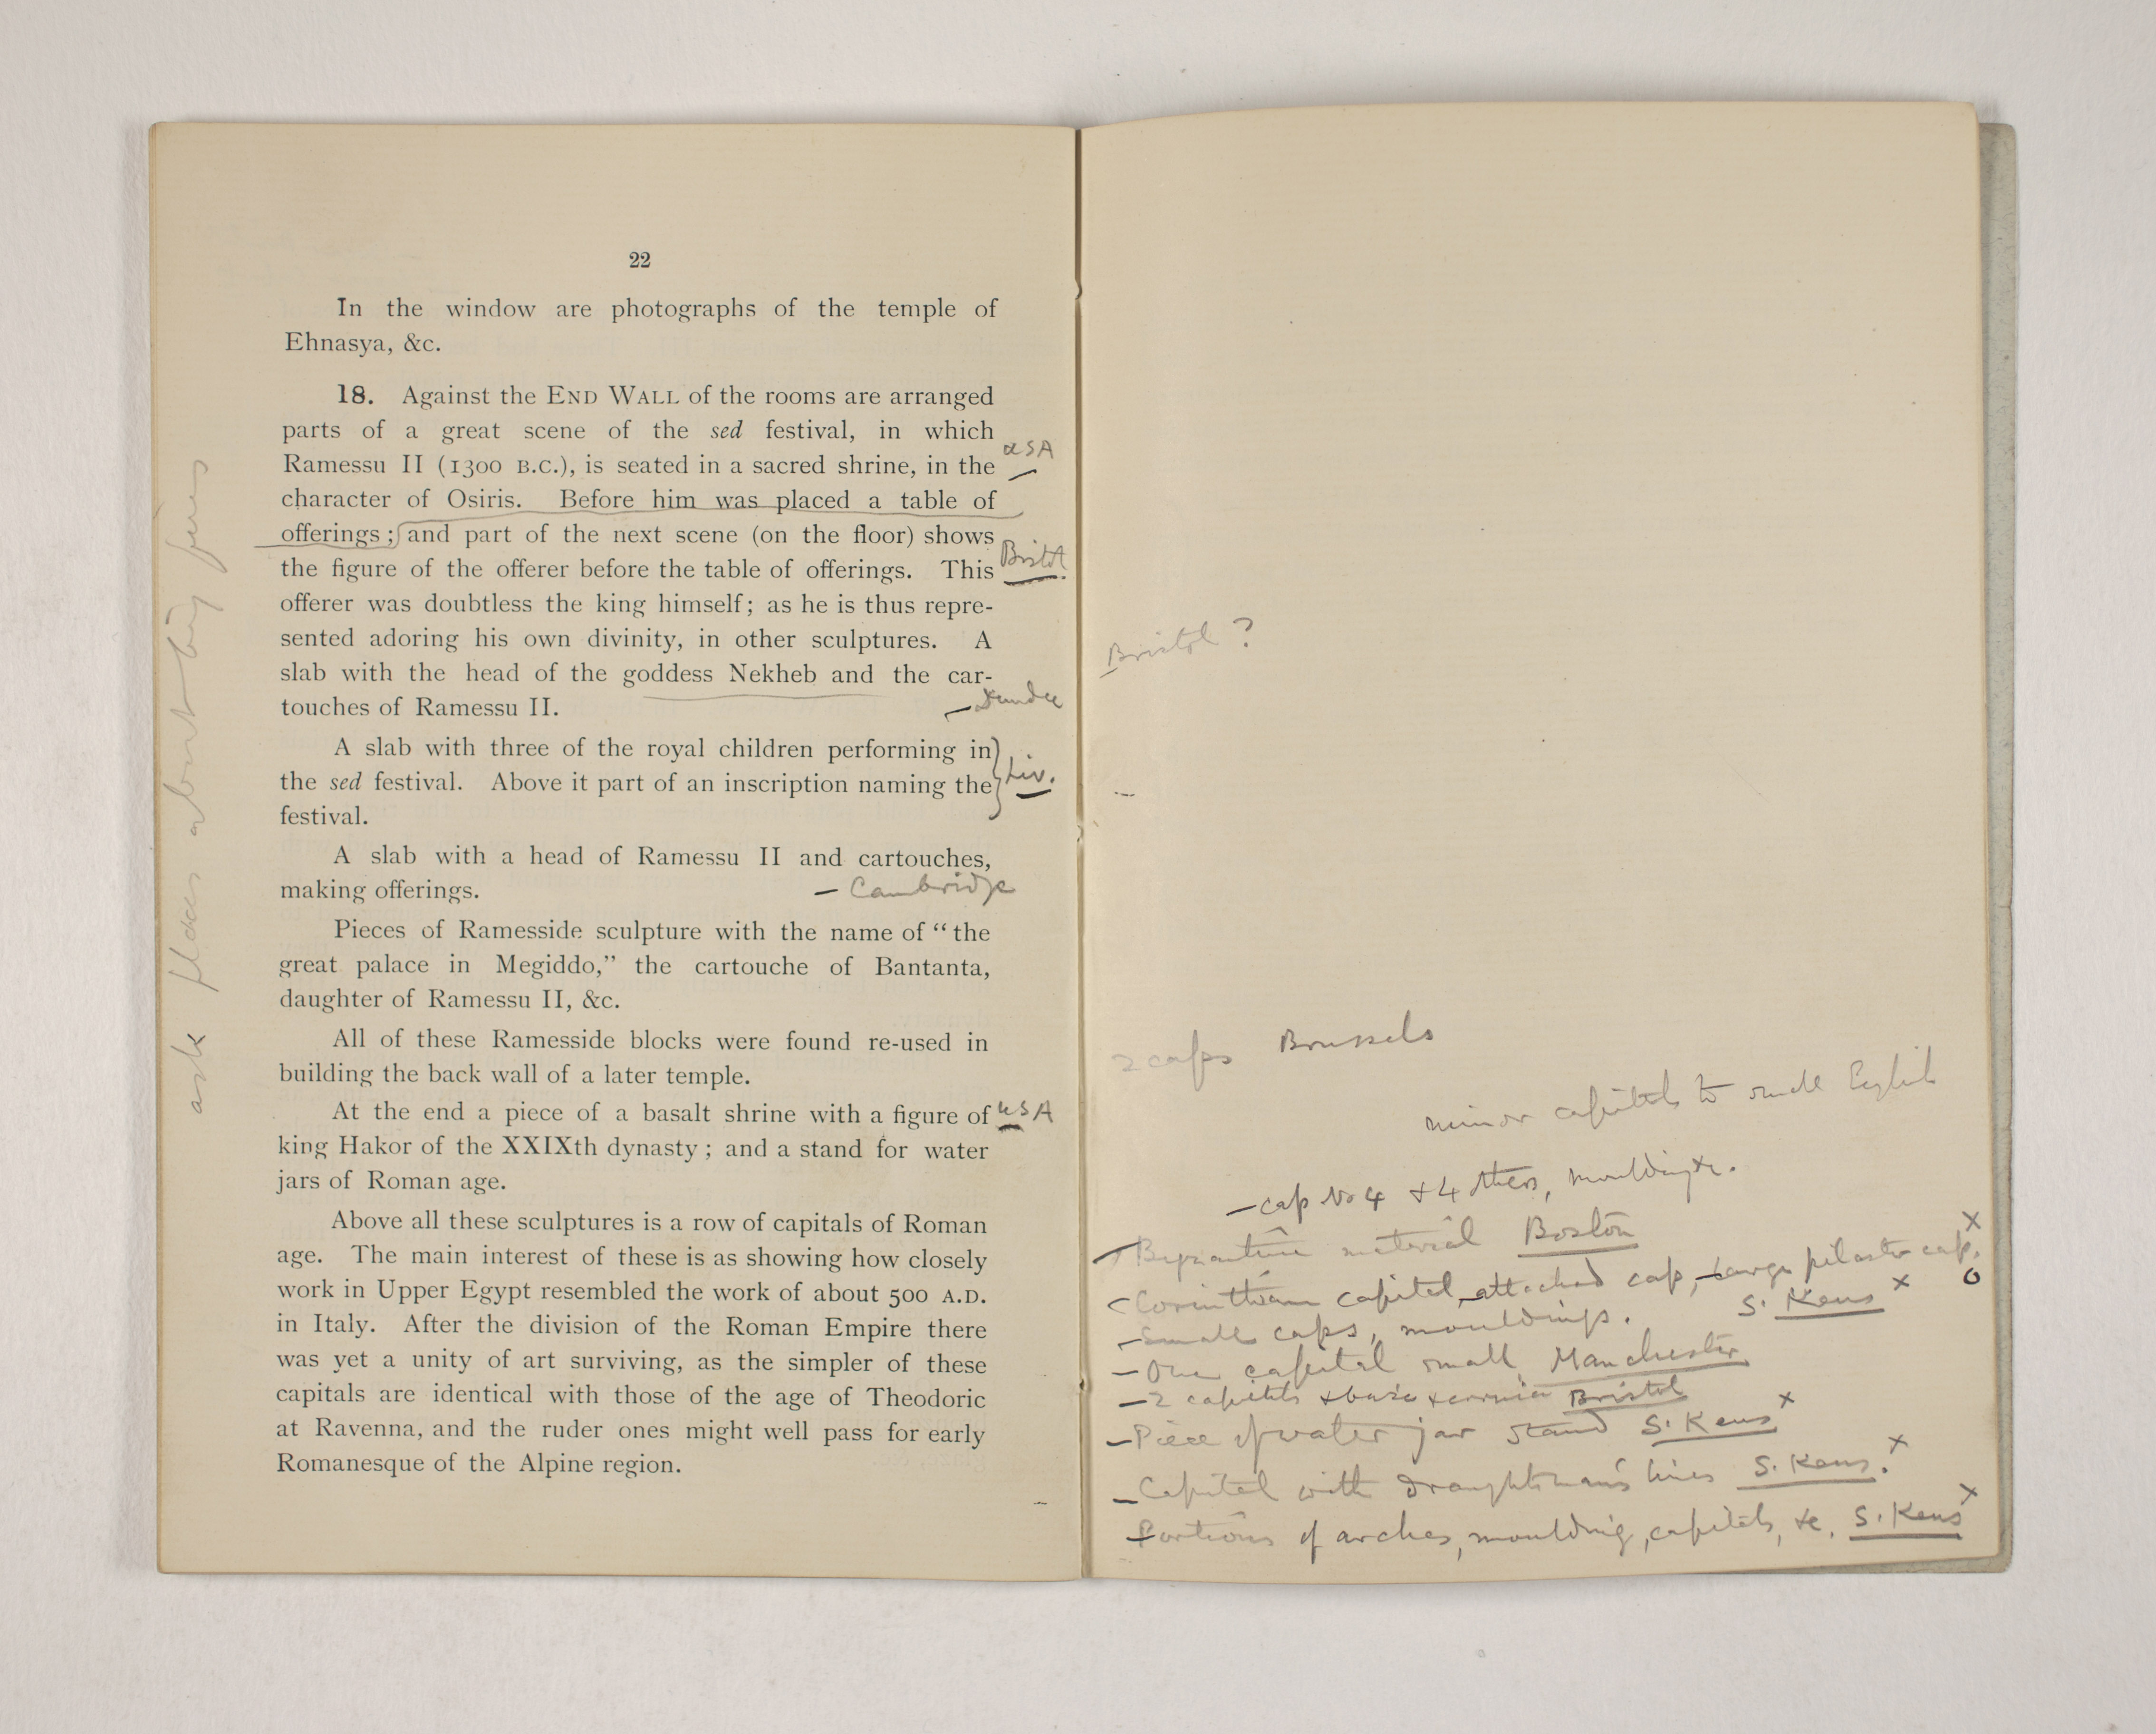 22
In the window are photographs of the temple of
Ehnasya, &c.
18. Against the END WALL of the rooms are arranged
parts of a great scene of the sed festival, in which
USA
Ramessu II (1300 B.C.), is seated in a sacred shrine, in the
character of Osiris. Before him was placed a table of
offerings; and part of the next scene (on the floor) shows
Bristol
the figure of the offerer before the table of offerings. This
offerer was doubtless the king himself; as he is thus repre-
sented adoring his own divinity, in other sculptures. A
slab with the head of the goddess Nekheb and the car-
touches of Ramessu II.
– Dundee
A slab with three of the royal children performing in
the sed festival. Above it part of an inscription naming the
Liv.
festival.
A slab with a head of Ramessu II and cartouches,
making offerings. – Cambridge
Pieces of Ramesside sculpture with the name of “the
great palace in Megiddo,” the cartouche of Bantanta,
daughter of Ramessu II, &c.
All of these Ramesside blocks were found re-used in
building the back wall of a later temple.
At the end a piece of a basalt shrine with a figure of
USA
king Hakor of the XXIXth dynasty; and a stand for water
jars of Roman age.
Above all these sculptures is a row of capitals of Roman
age. The main interest of these is as showing how closely
work in Upper Egypt resembled the work of about 500 A.D.
in Italy. After the division of the Roman Empire there
was yet a unity of art surviving, as the simpler of these
capitals are identical with those of the age of Theodoric
at Ravenna, and the ruder ones might well pass for early
Romanesque of the Alpine region.
ask about big
Bristol ?
2 caps Brussels
minor capitals to small
– cap No 4 & 4 others, moulding &c.
– Byzantine material Boston
– Corinthian capital, attached cap, – Large pilaster cap. x
– Small caps, mouldings. S. Kens x o
– One capital small Manchester
– 2 capitals & base & cornice Bristol
– Piece of water jar stand S. Kens x
– Capital with draughtsman's lines S. Kens. x
– Portions of arches, moulding, capitals, &c. S. Kens x